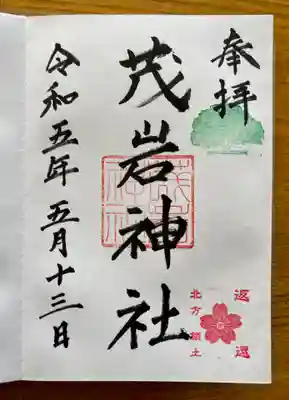 奉拝
茂岩神社
令和五年五月十三日
茂岩神社
返還
北方領土